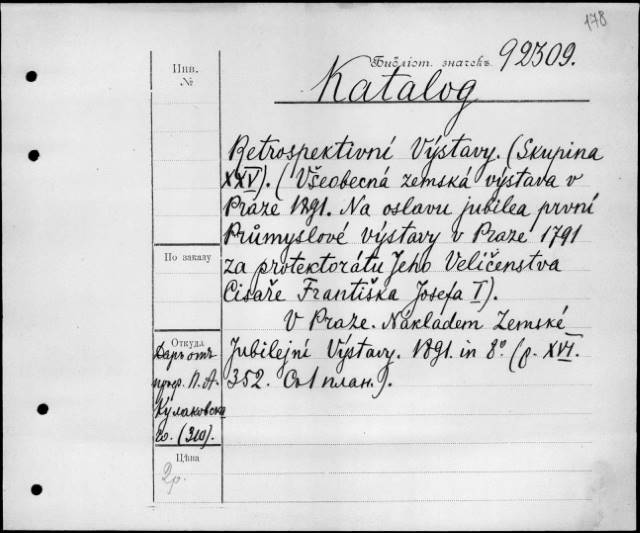 178
Инв.
№
Библіот. значекъ 92309.
Katalog
Retrospektivní Výstavy. (Skupina
XXV). (Všeobecná zemská výstava v
Práze 1891. Na oslavu jubilea první
Průmyslové výstavy v Praze 1791
за заказу
za protektorátu Jeho Veličenstva
Cisaře Františka Josefa I).
V Praze. Nákladem Zemské
Jubilejní Výstavy. 1891. in 8° (p. XVI.
352. Съ 1 план.).
По заказу
Откуда
Даръ отъ
проф. П. А.
Кулаковска
го. (310).
Цѣна
2р.